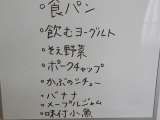 °食パン
°飲むヨーグルト
°そえ野菜
°ポークチャップ
°かぶのシチュー
°バナナ
°メープルジャム
°味付小魚